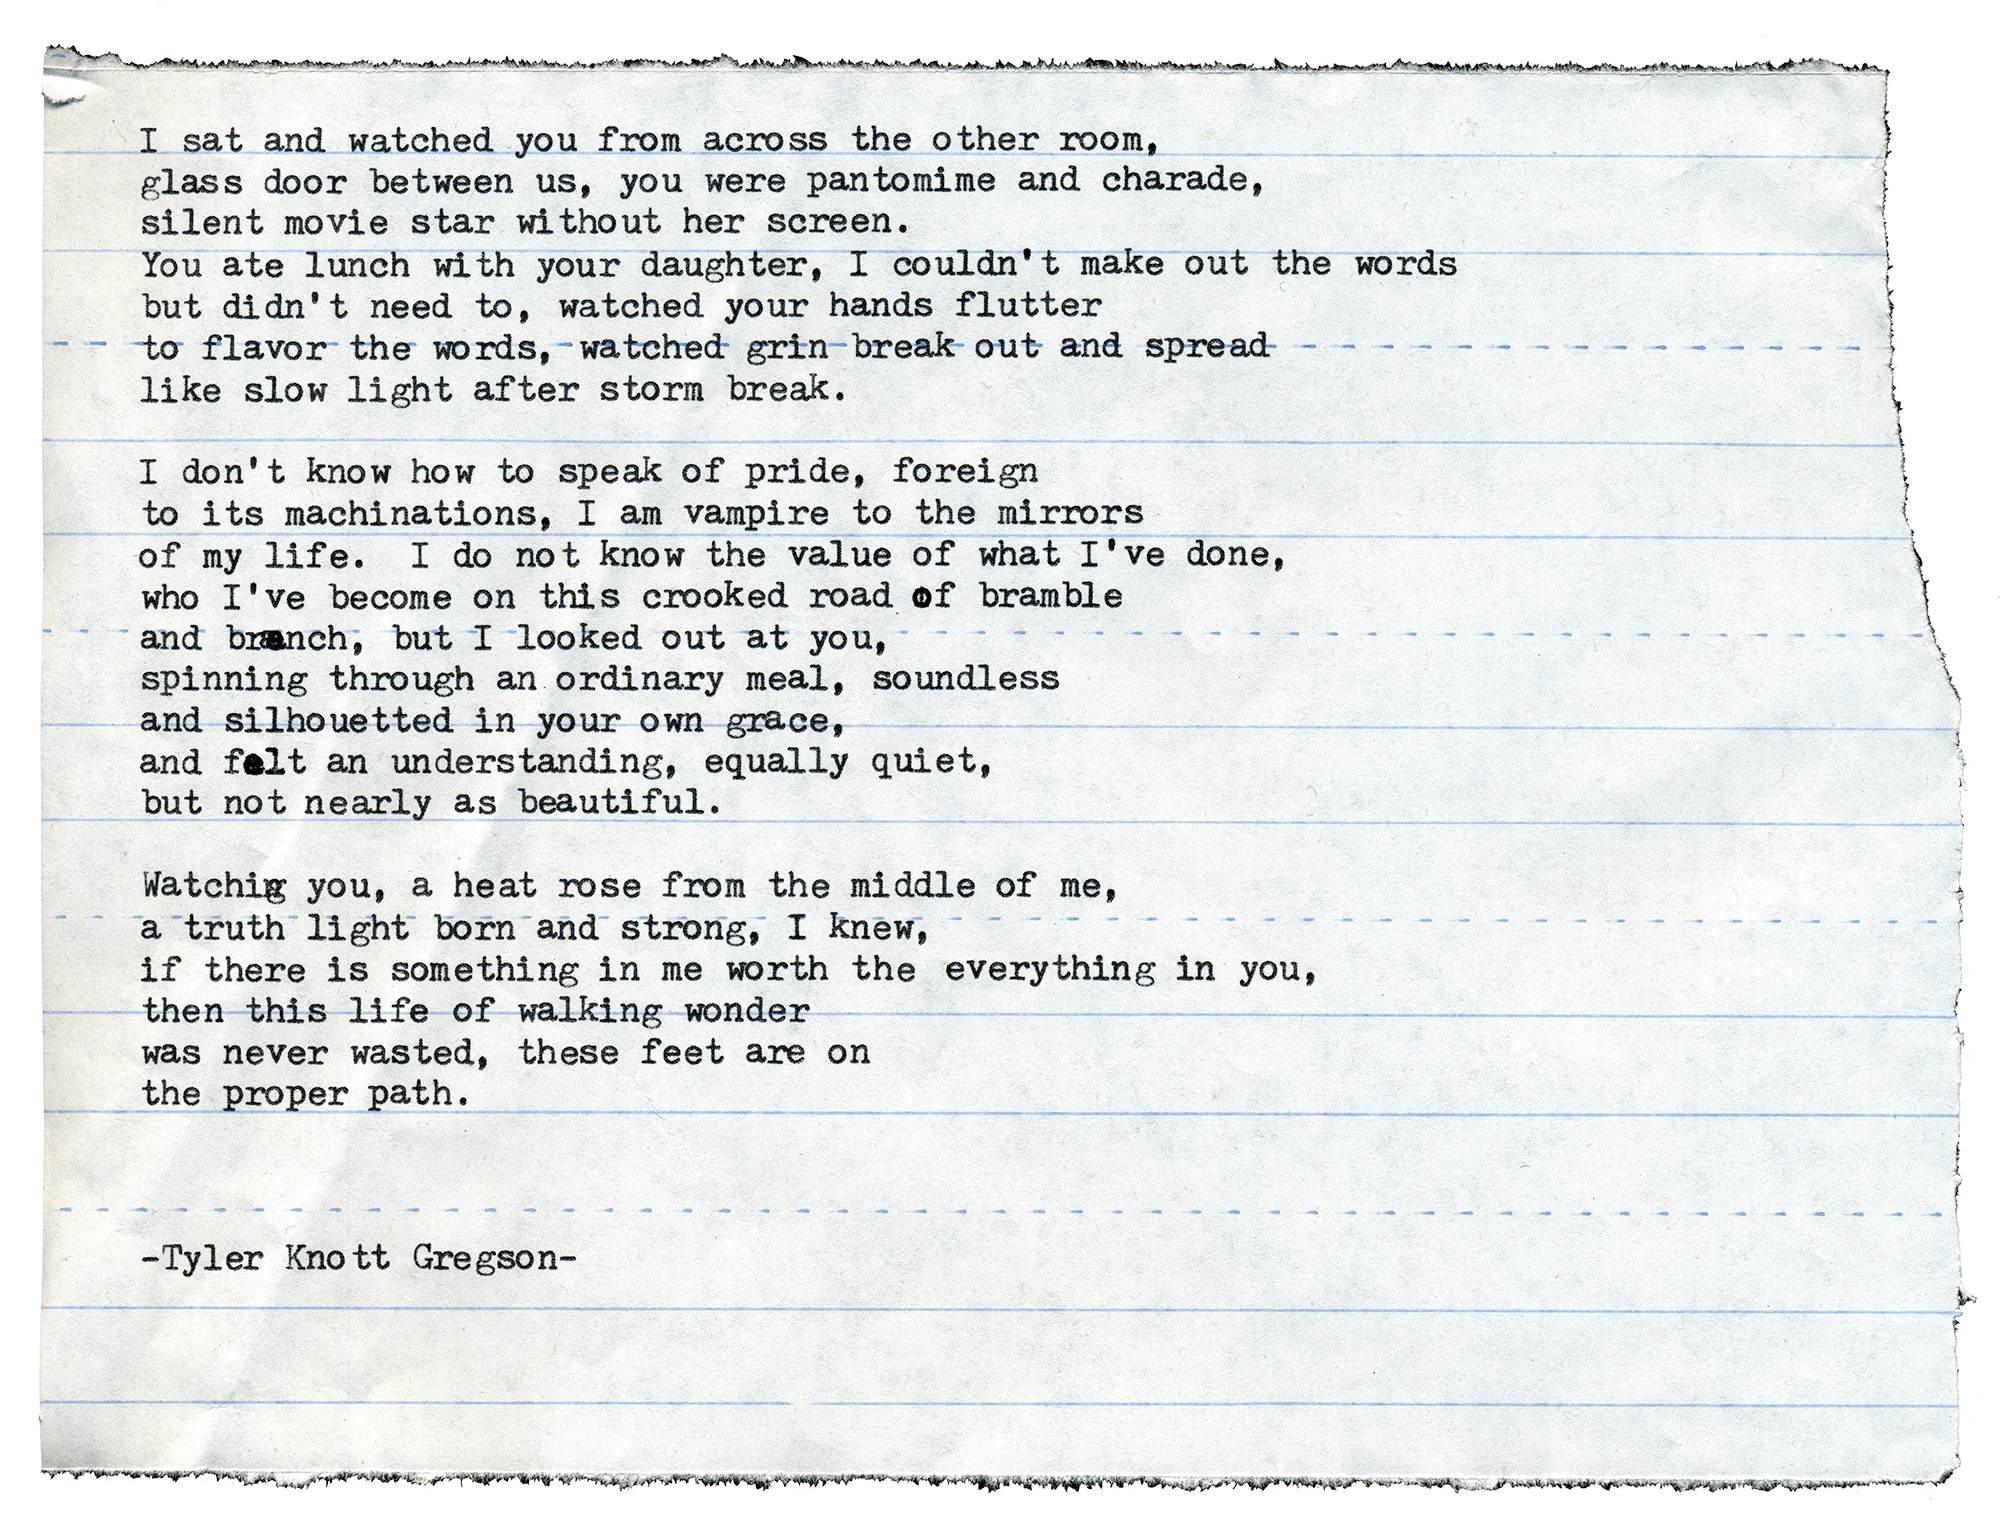 I sat and watched you from across the other room,
glass door between us, you were pantomime and charade,
silent movie star without her screen.
You ate lunch with your daughter, I couldn't make out the words
but didn't need to, watched your hands flutter
to flavor the words, watched grin break out and spread
like slow light after storm break.

I don't know how to speak of pride, foreign
to its machinations, I am vampire to the mirrors
of my life.  I do not know the value of what I've done,
who I've become on this crooked road of bramble
and branch, but I looked out at you,
spinning through an ordinary meal, soundless
and silhouetted in your own grace,
and felt an understanding, equally quiet,
but not nearly as beautiful.

Watching you, a heat rose from the middle of me,
a truth light born and strong, I knew,
if there is something in me worth the everything in you,
then this life of walking wonder
was never wasted, these feet are on
the proper path.

-Tyler Knott Gregson-